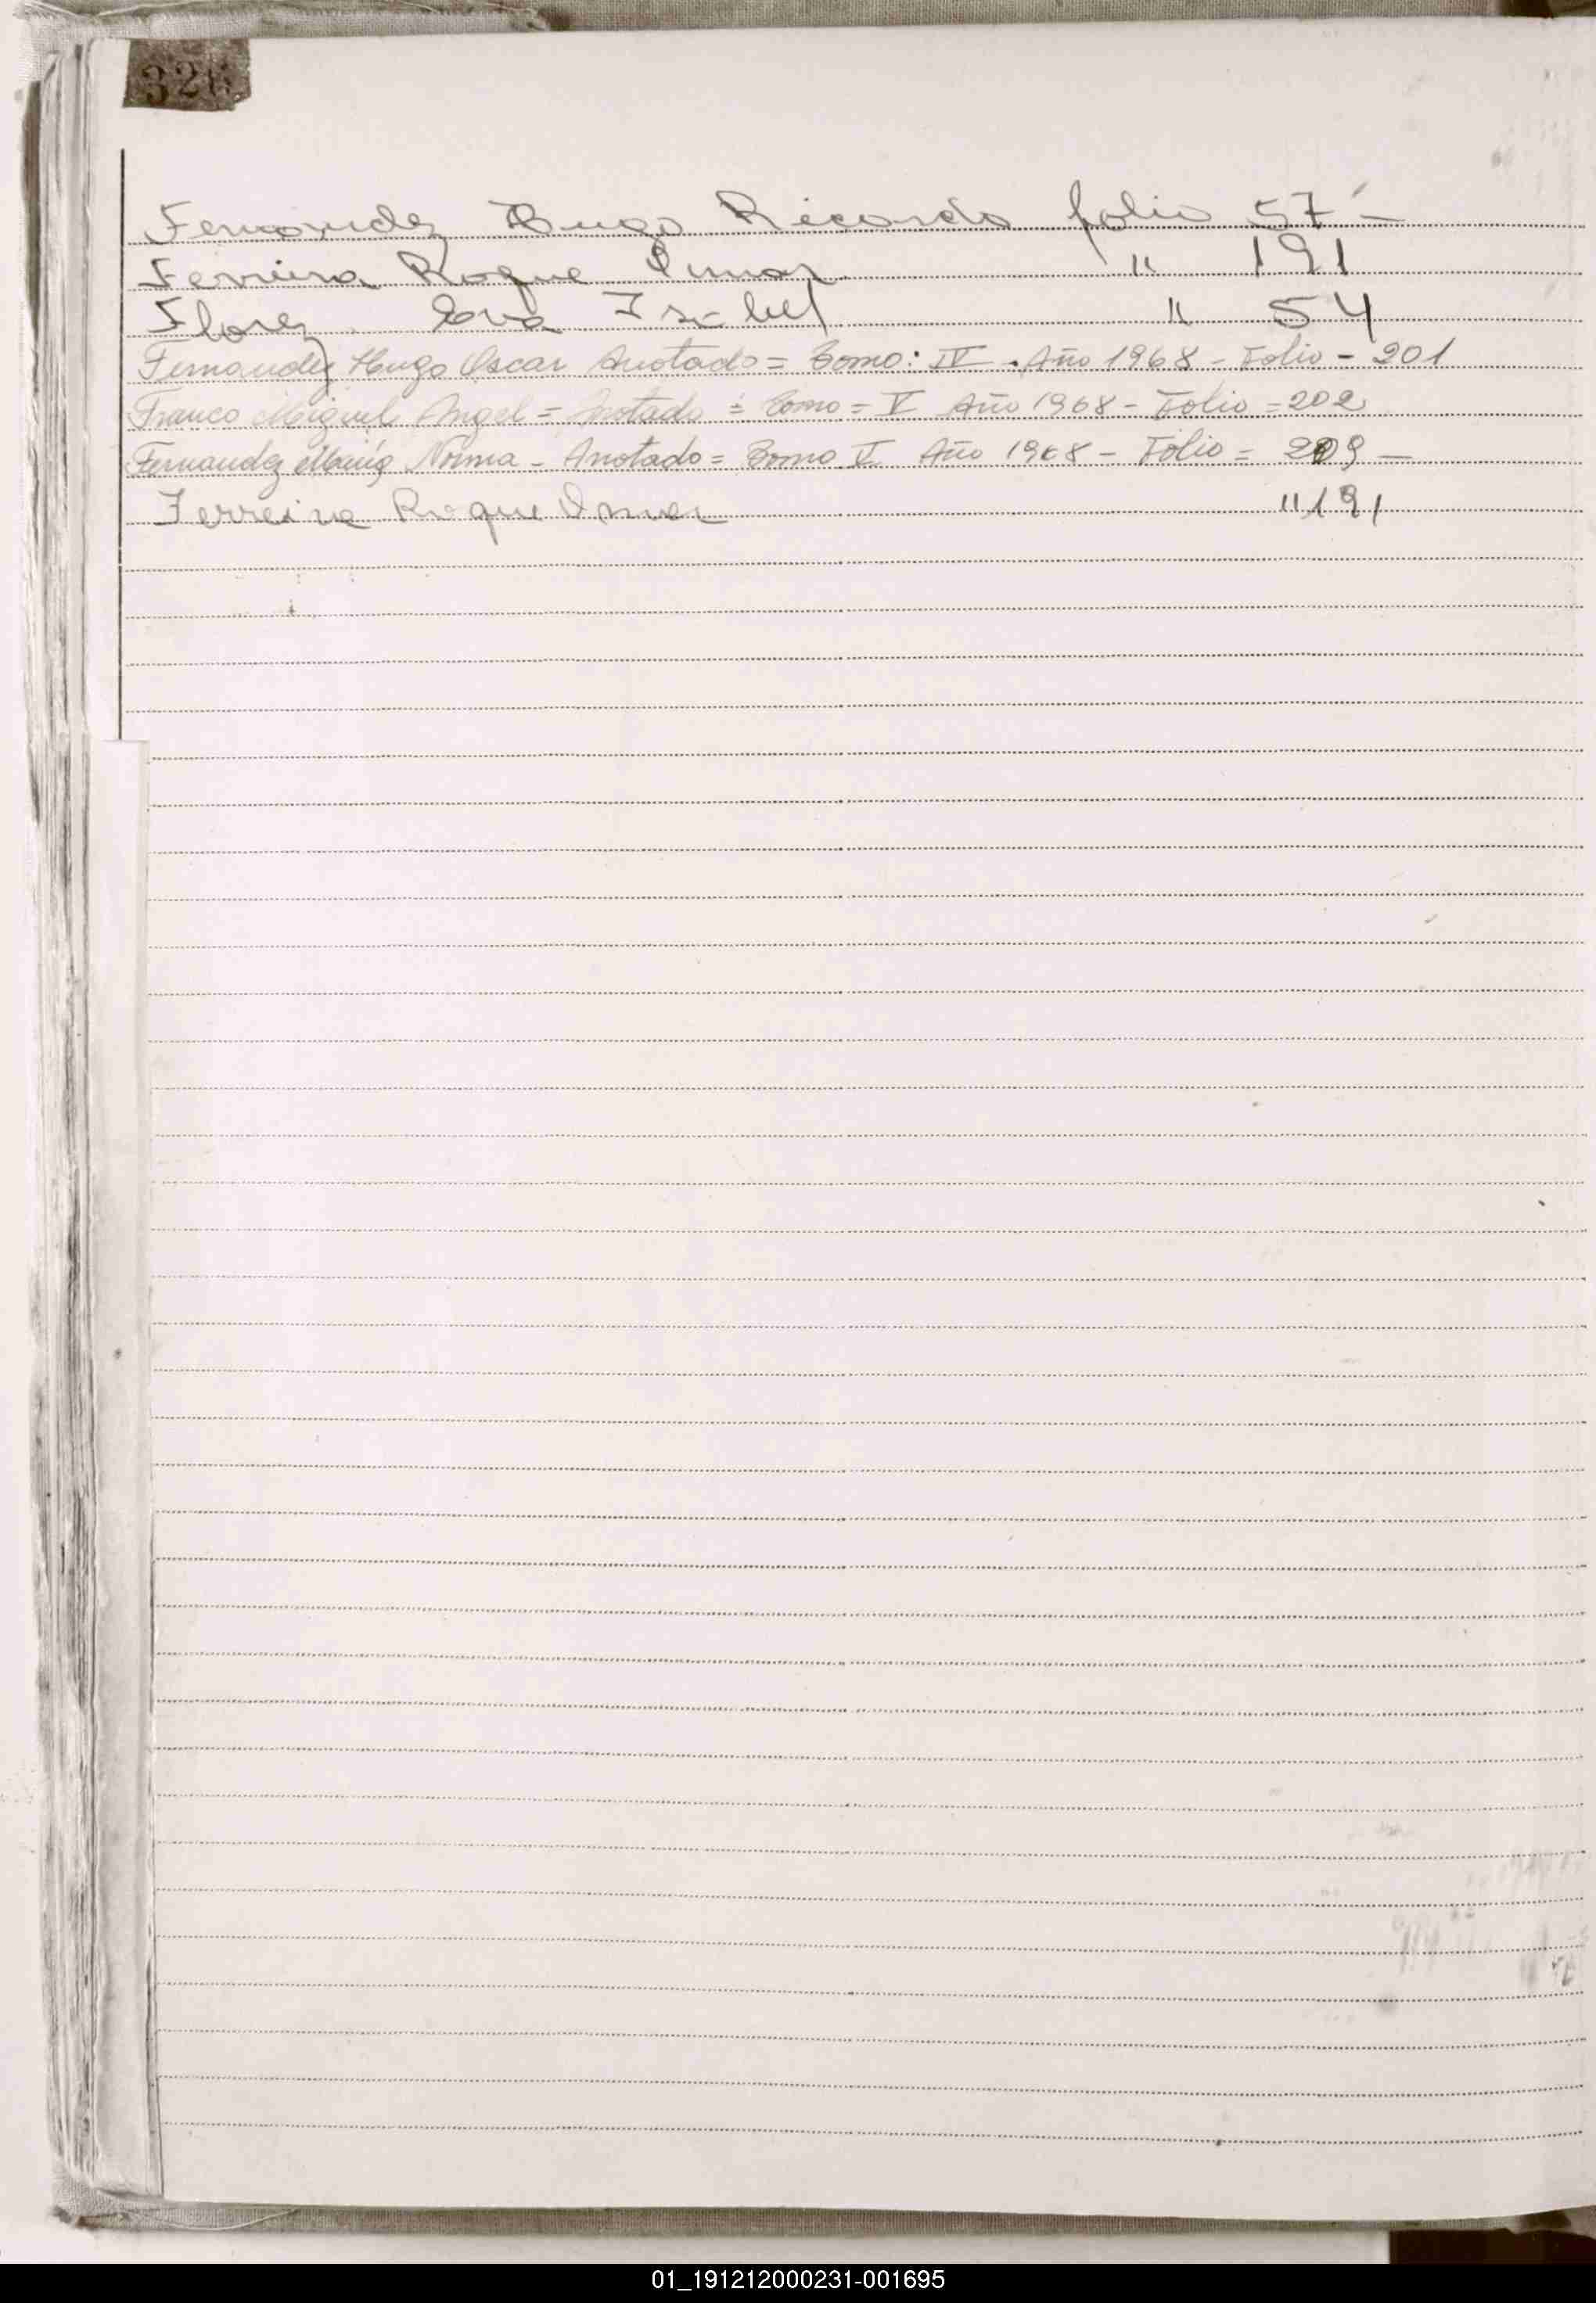 326
Fernandez Hugo Ricardo folio 57 -
Ferreira Roque Omar " 191
Florez Eva Isabel " 54
Fernandez Hugo Oscar Anotado = Tomo: IV . Año 1968 - Folio - 201
Franco Miguel Angel = Anotado = Tomo = V Año 1968 - Folio = 202
Fernandez María Norma - Anotado = Tomo V Año 1968 - Folio = 209 -
Ferreira Roque Omar " 191
01_191212000231-001695